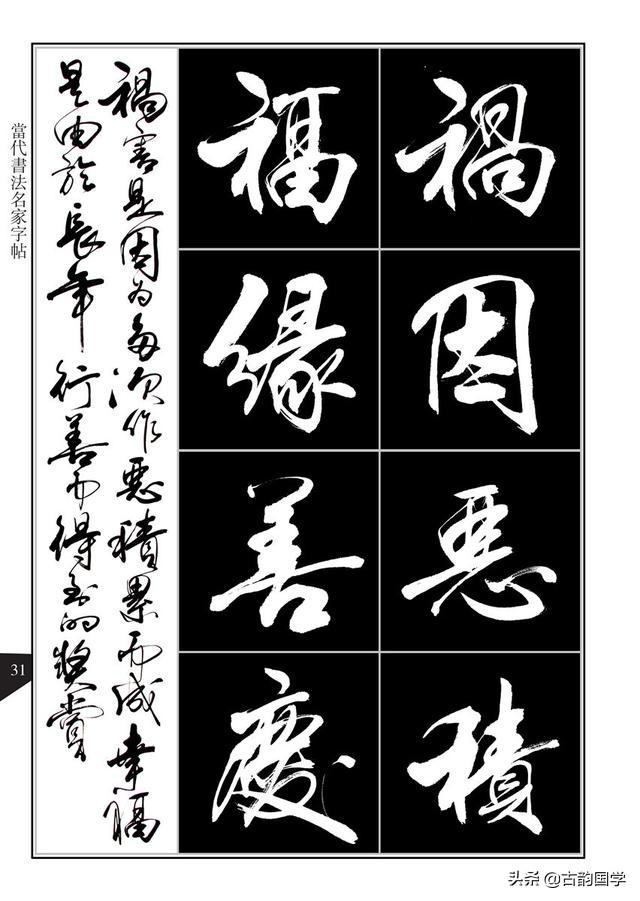 禍因惡積
福緣善慶
禍害是因为每次作惡積累而成幸福
是由於長年行善而得到的奖赏
當代書法名家字帖
31
头条 @古韵国学